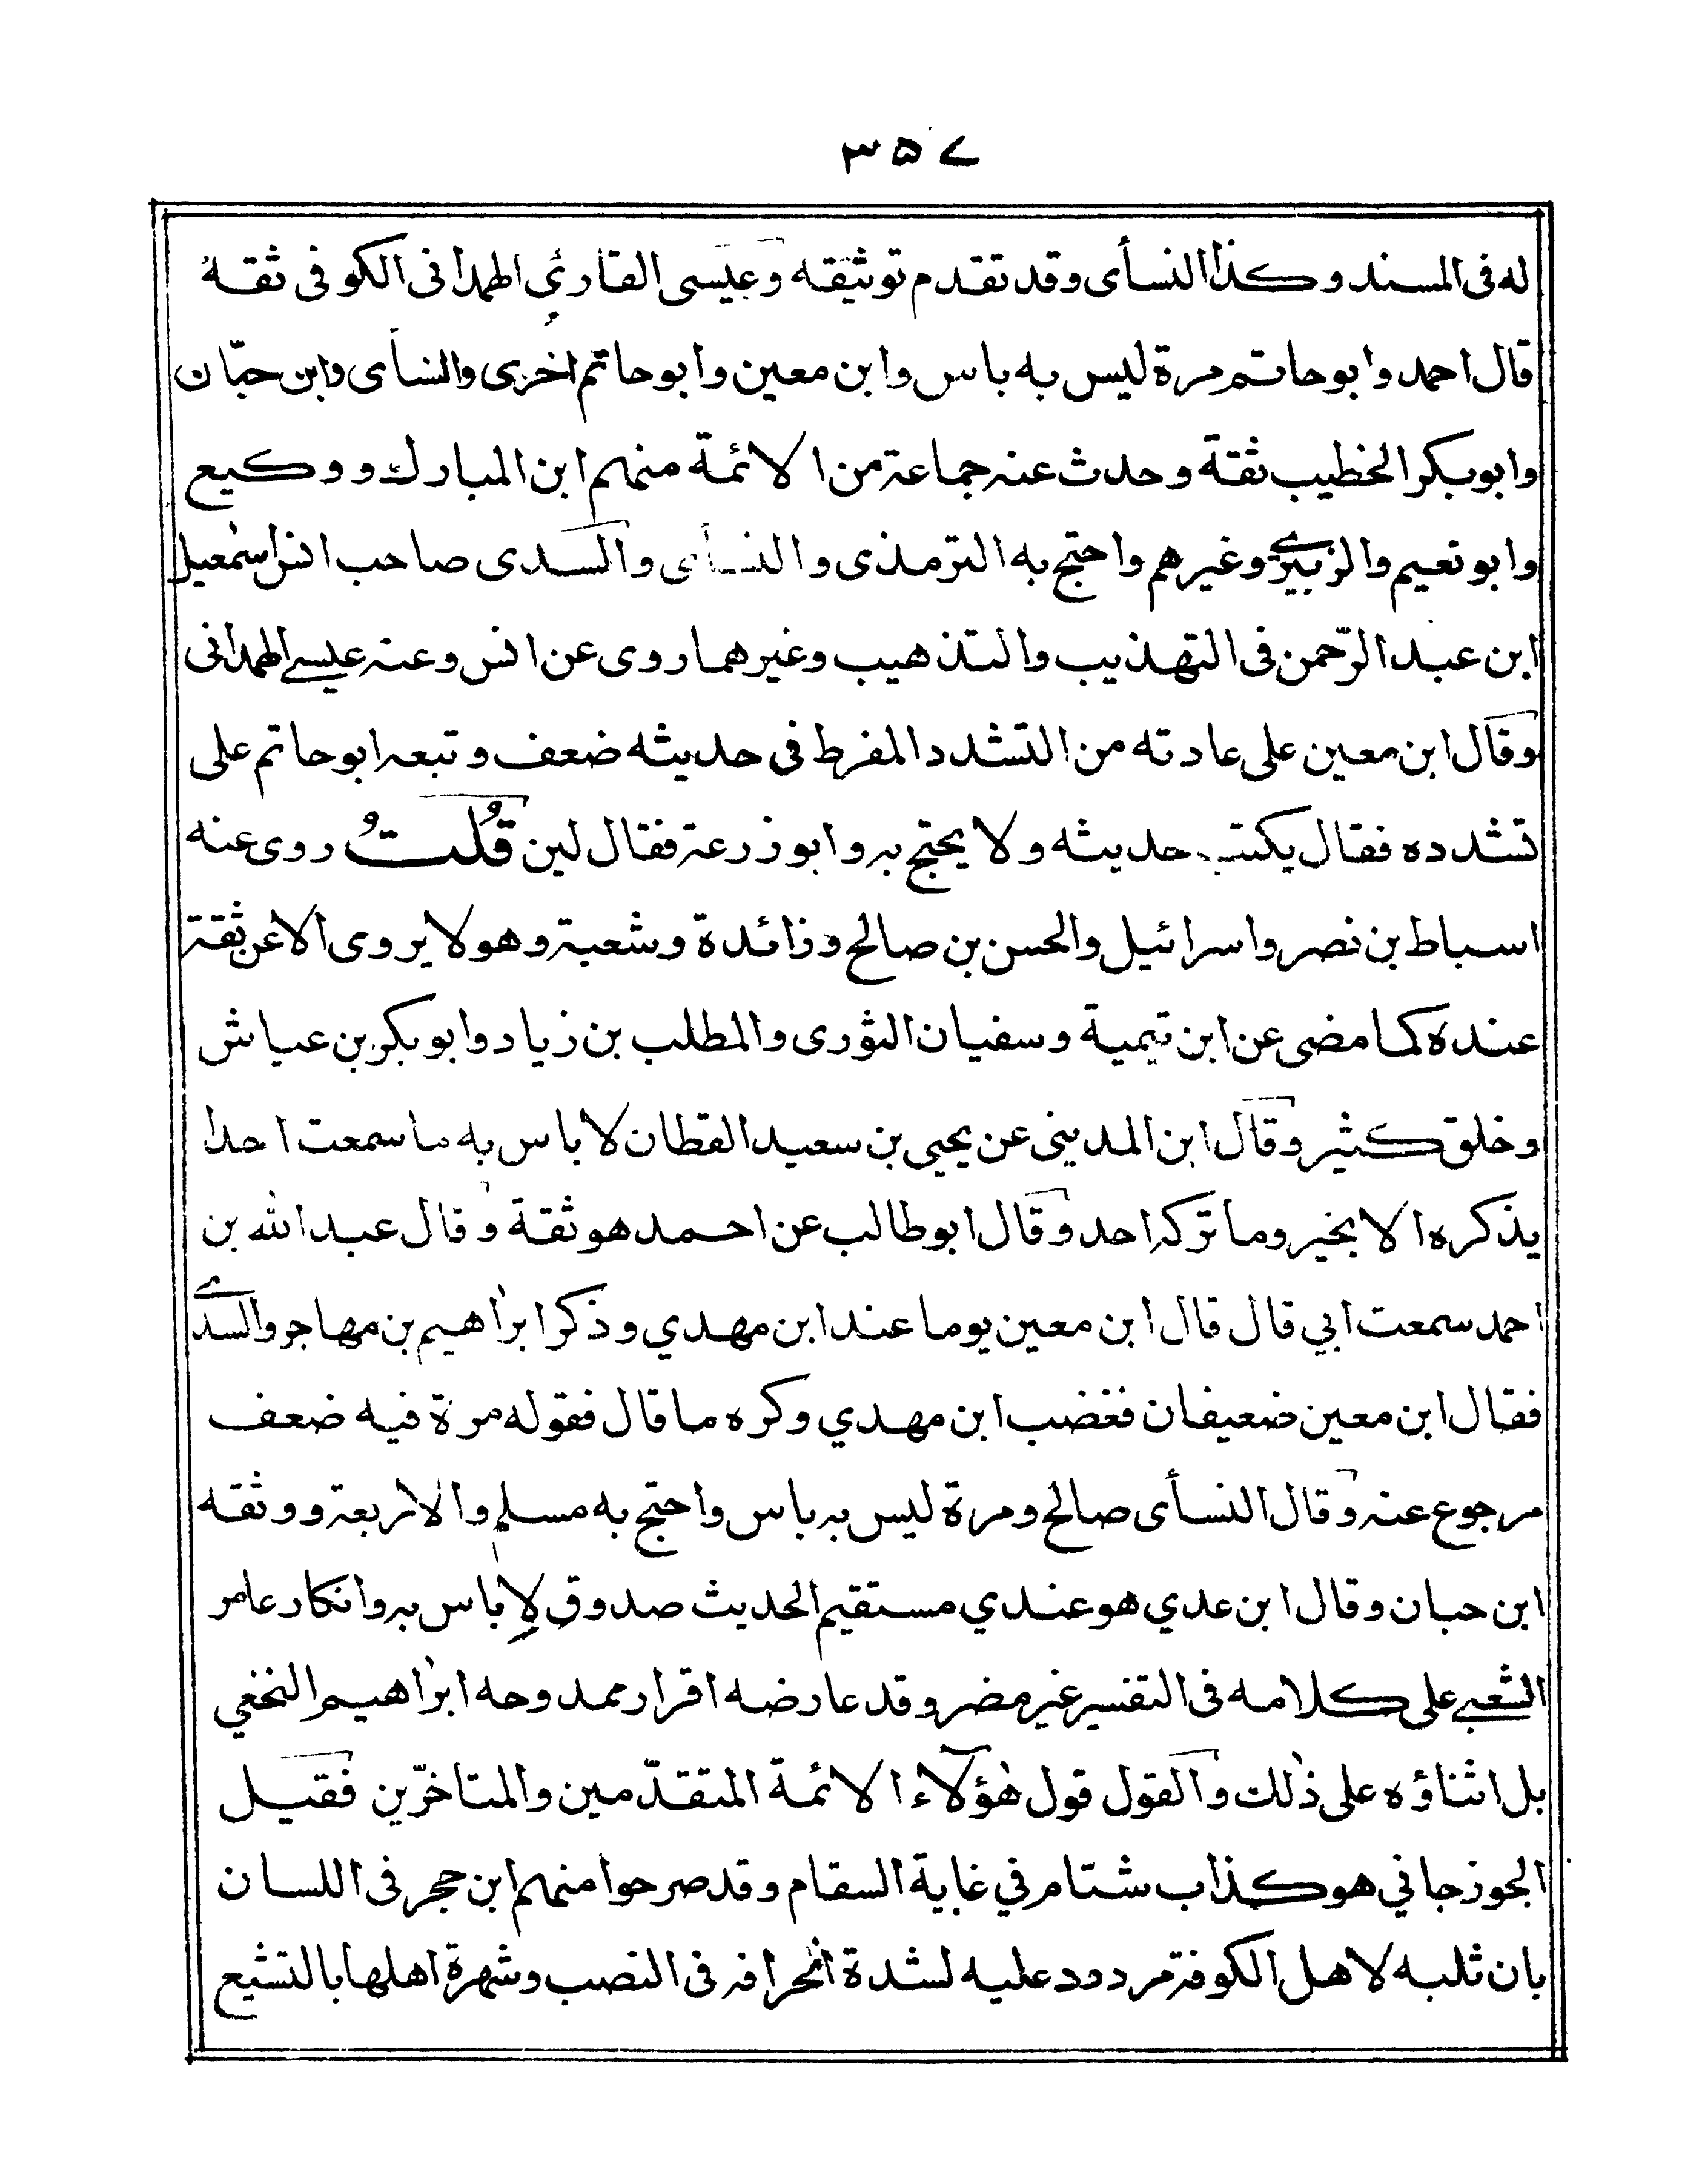 ٣٥٧
له فى المسند وكذا النسأى وقد تقدم توثيقه وعيسى القارئي الهمدانى الكوفى ثقة
قال احمد وابو حاتم مرة ليس به باس وابن معين وابو حاتم اخرى والنسأى وابن حبّان
وابو بكر الخطيب ثقة وحدث عنه جماعة من الائمة منهم ابن المبارك ووكيع
وابو نعيم والزبيرى وغيرهم واحتج به الترمذى والنسأى والسدى صاحب انس اسمٰعيل
ابن عبد الرّحمن فى التهذيب والتذهيب وغيرهما روى عن انس وعنه عيسى الهمدانى
وقال ابن معين على عادته من التشدد المفرط فى حديثه ضعف وتبعه ابو حاتم على
تشدده فقال يكتب حديثه ولا يحتج به وابو زرعة فقال لين قُلتُ روى عنه
اسباط بن نصر واسرائيل والحسن بن صالح وزائدة وشعبة وهو لا يروى الا عن ثقة
عنده كما مضى عن ابن تيمية وسفيان الثورى والمطلب بن زياد وابو بكر بن عياش
وخلق كثير وقال ابن المدينى عن يحيى بن سعيد القطان لا باس به ما سمعت احدا
يذكره الا بخير وما تركه احد وقال ابو طالب عن احمد هو ثقة وقال عبد الله بن
احمد سمعت ابي قال قال ابن معين يوما عند ابن مهدي وذكر ابرٰاهيم بن مهاجر والسدى
فقال ابن معين ضعيفان فغضب ابن مهدي وكره ما قال فقوله مرة فيه ضعف
مرجوع عنه وقال النسأى صالح ومرة ليس به باس واحتج به مسلم والاربعة ووثقه
ابن حبان وقال ابن عدي هو عندي مستقيم الحديث صدوق لا باس به وانكار عامر
الشعبي على كلامه فى التفسير غير مضر وقد عارضه اقرار ممدوحه ابرٰاهيم النخعي
بل اثناؤه على ذٰلك والقول قول هٰؤلآء الائمة المتقدّمين والمتاخرّين فقيل
الجوزجاني هو كذاب شتام في غاية السقام وقد صرحوا منهم ابن حجر فى اللسان
بان ثلبه لاهل الكوفة مردود عليه لشدة انحرافه فى النصب وشهرة اهلها بالتشيع